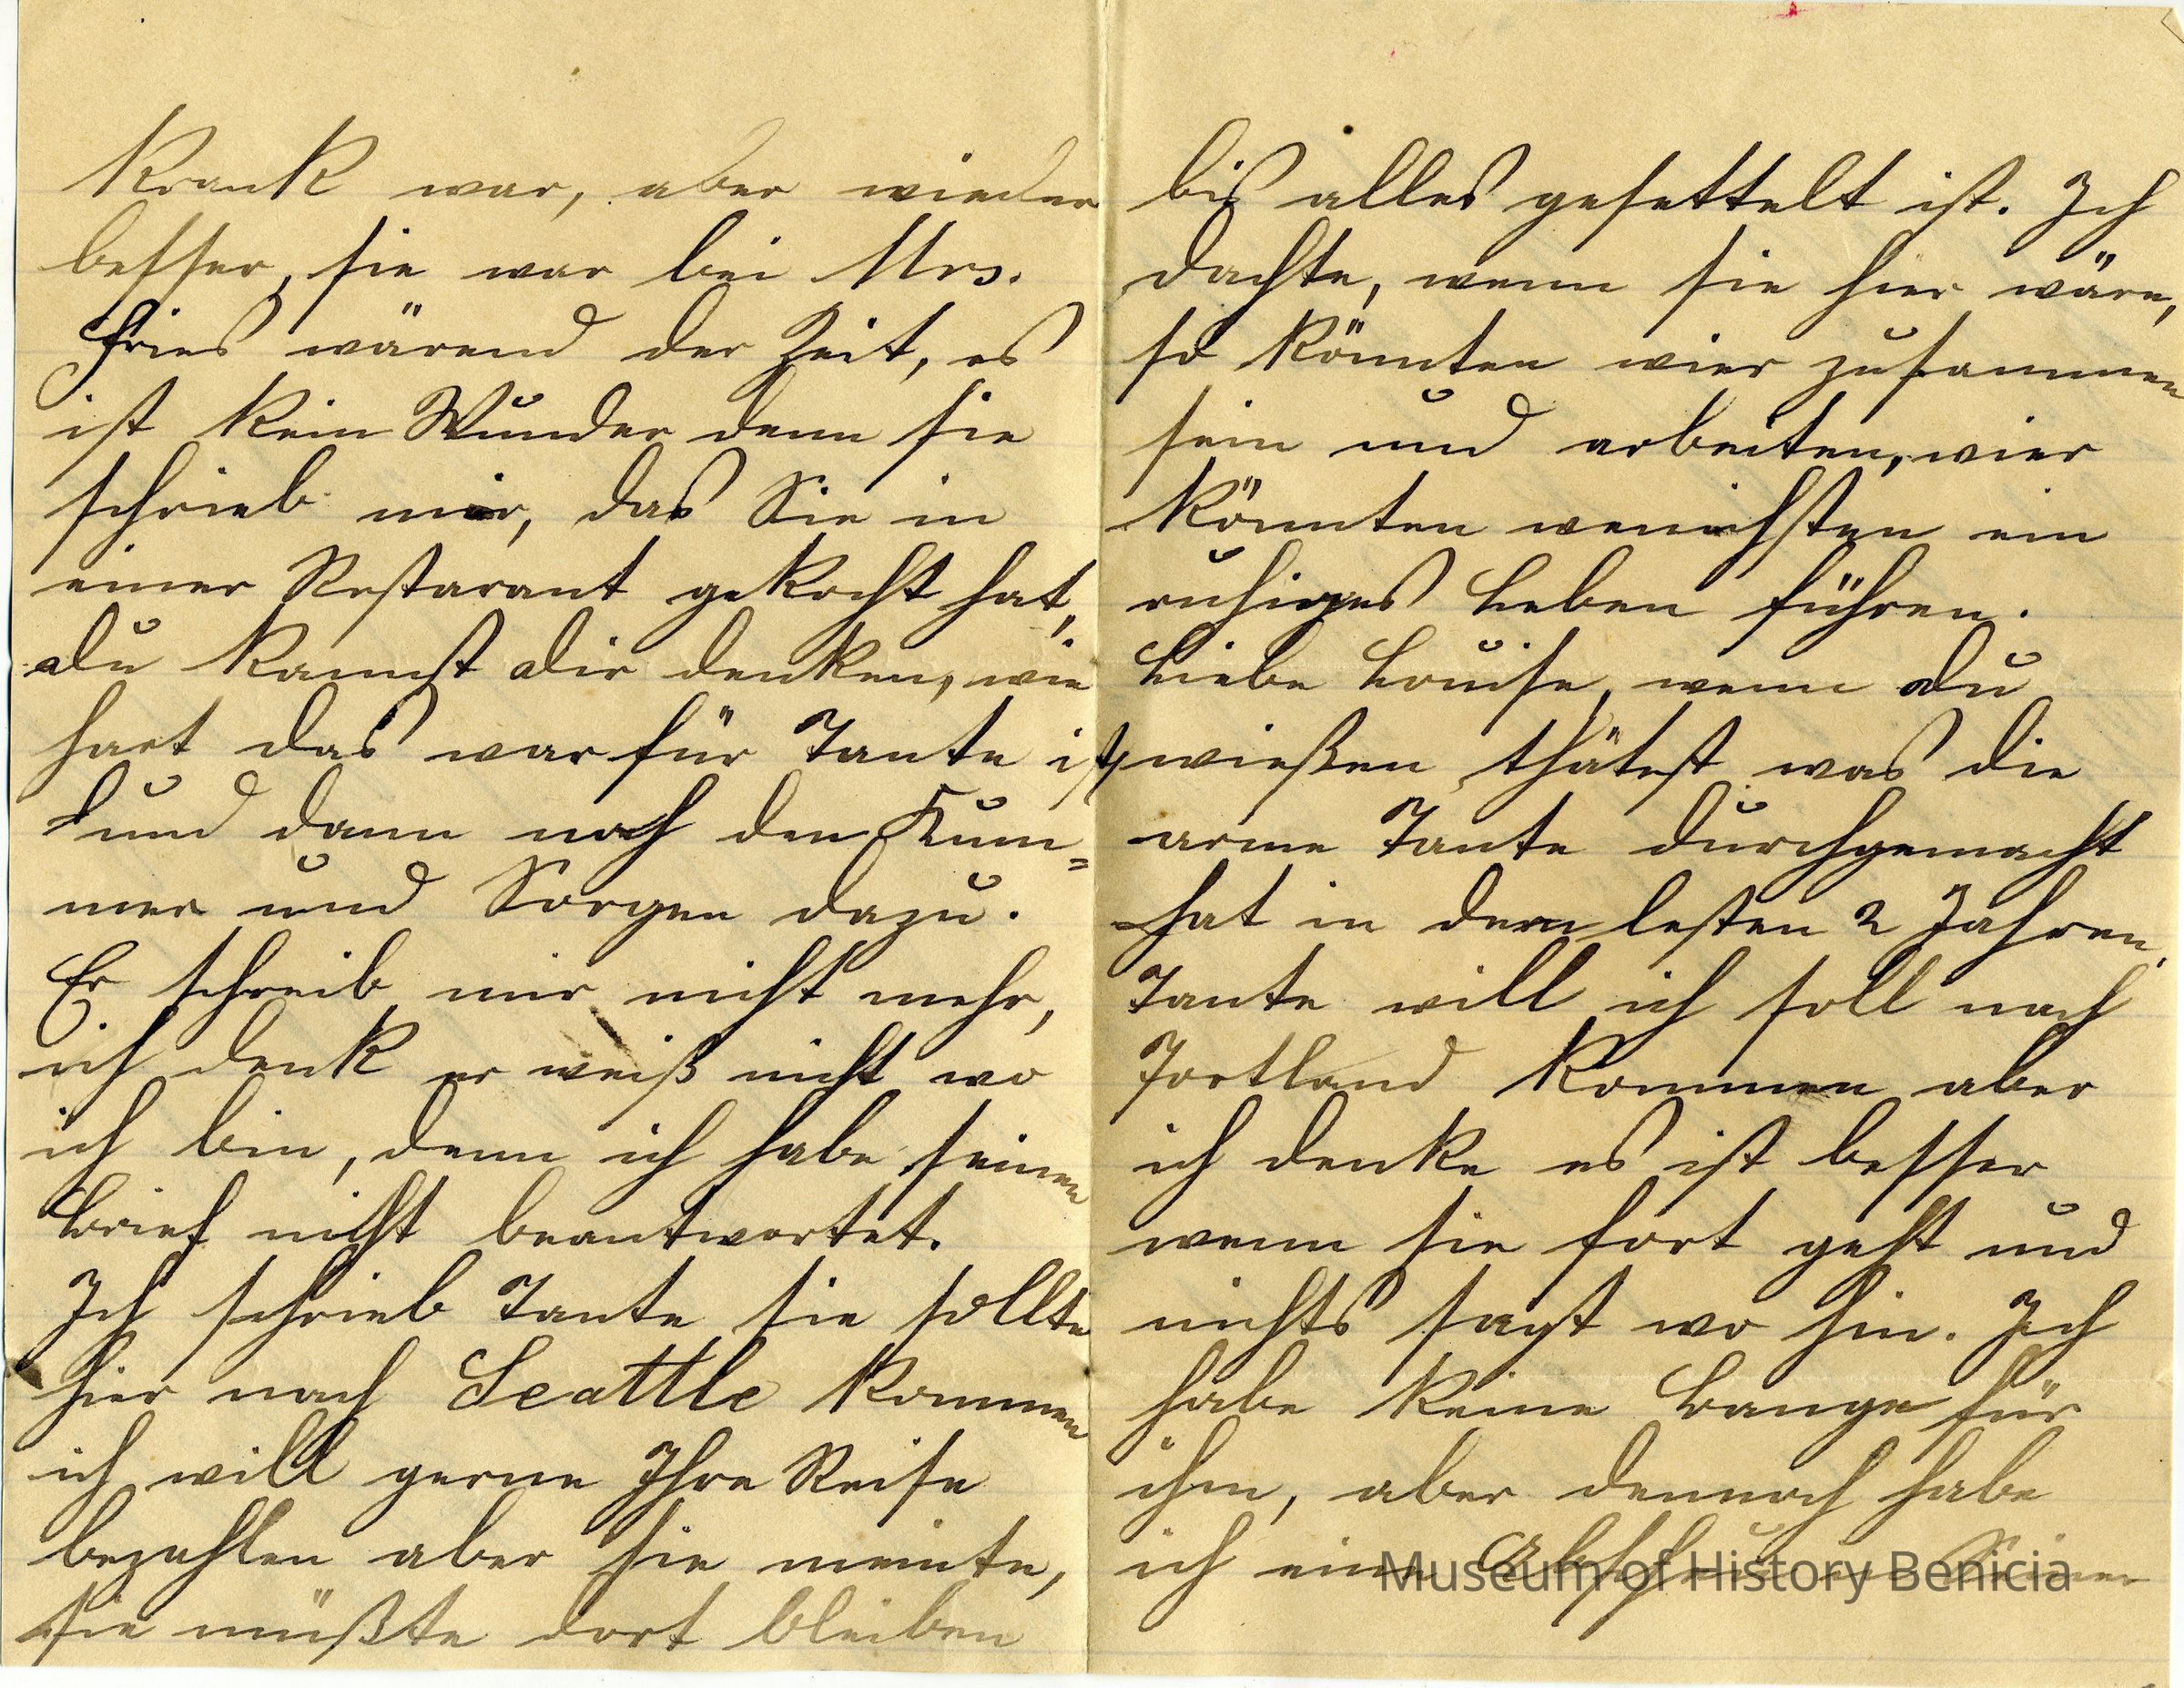 krank war, aber wieder
besser, sie war bei Mrs.
Fries wärend der Zeit, es
ist kein Wunder denn sie
schrieb mir, das Sie in
einer Restarant gekocht hat,
du kannst dir denken, wie
hart das war für Tante ist,
und dann noch den Kum=
mer und Sorgen dazu.
Er schreib mir nicht mehr,
ich denk er weiß nicht wo
ich bin, denn ich habe seinen
Brief nicht beantwortet.
Ich schrieb Tante sie sollte
hier nach Seattle kommen
ich will gerne Ihre Reise
bezahlen aber sie meinte,
sie müßte dort bleiben
bis alles gesettelt ist. Ich
dachte, wenn sie hier wäre,
so könnten wier zusammen
sein und arbeiten, wier
könnten wenichsten ein
ruhiges Leben führen.
Liebe Louise, wenn du
wießen thätest was die
arme Tante durchgemacht
hat in den lesten 2 Jahren.
Tante will ich soll nach
Portland kommen aber
ich denke es ist besser
wenn sie fort geht und
nichts sagt wo hin. Ich
habe keine Bange für
ihm, aber dennoch habe
ich eine Abscheu
Museum of History Benicia